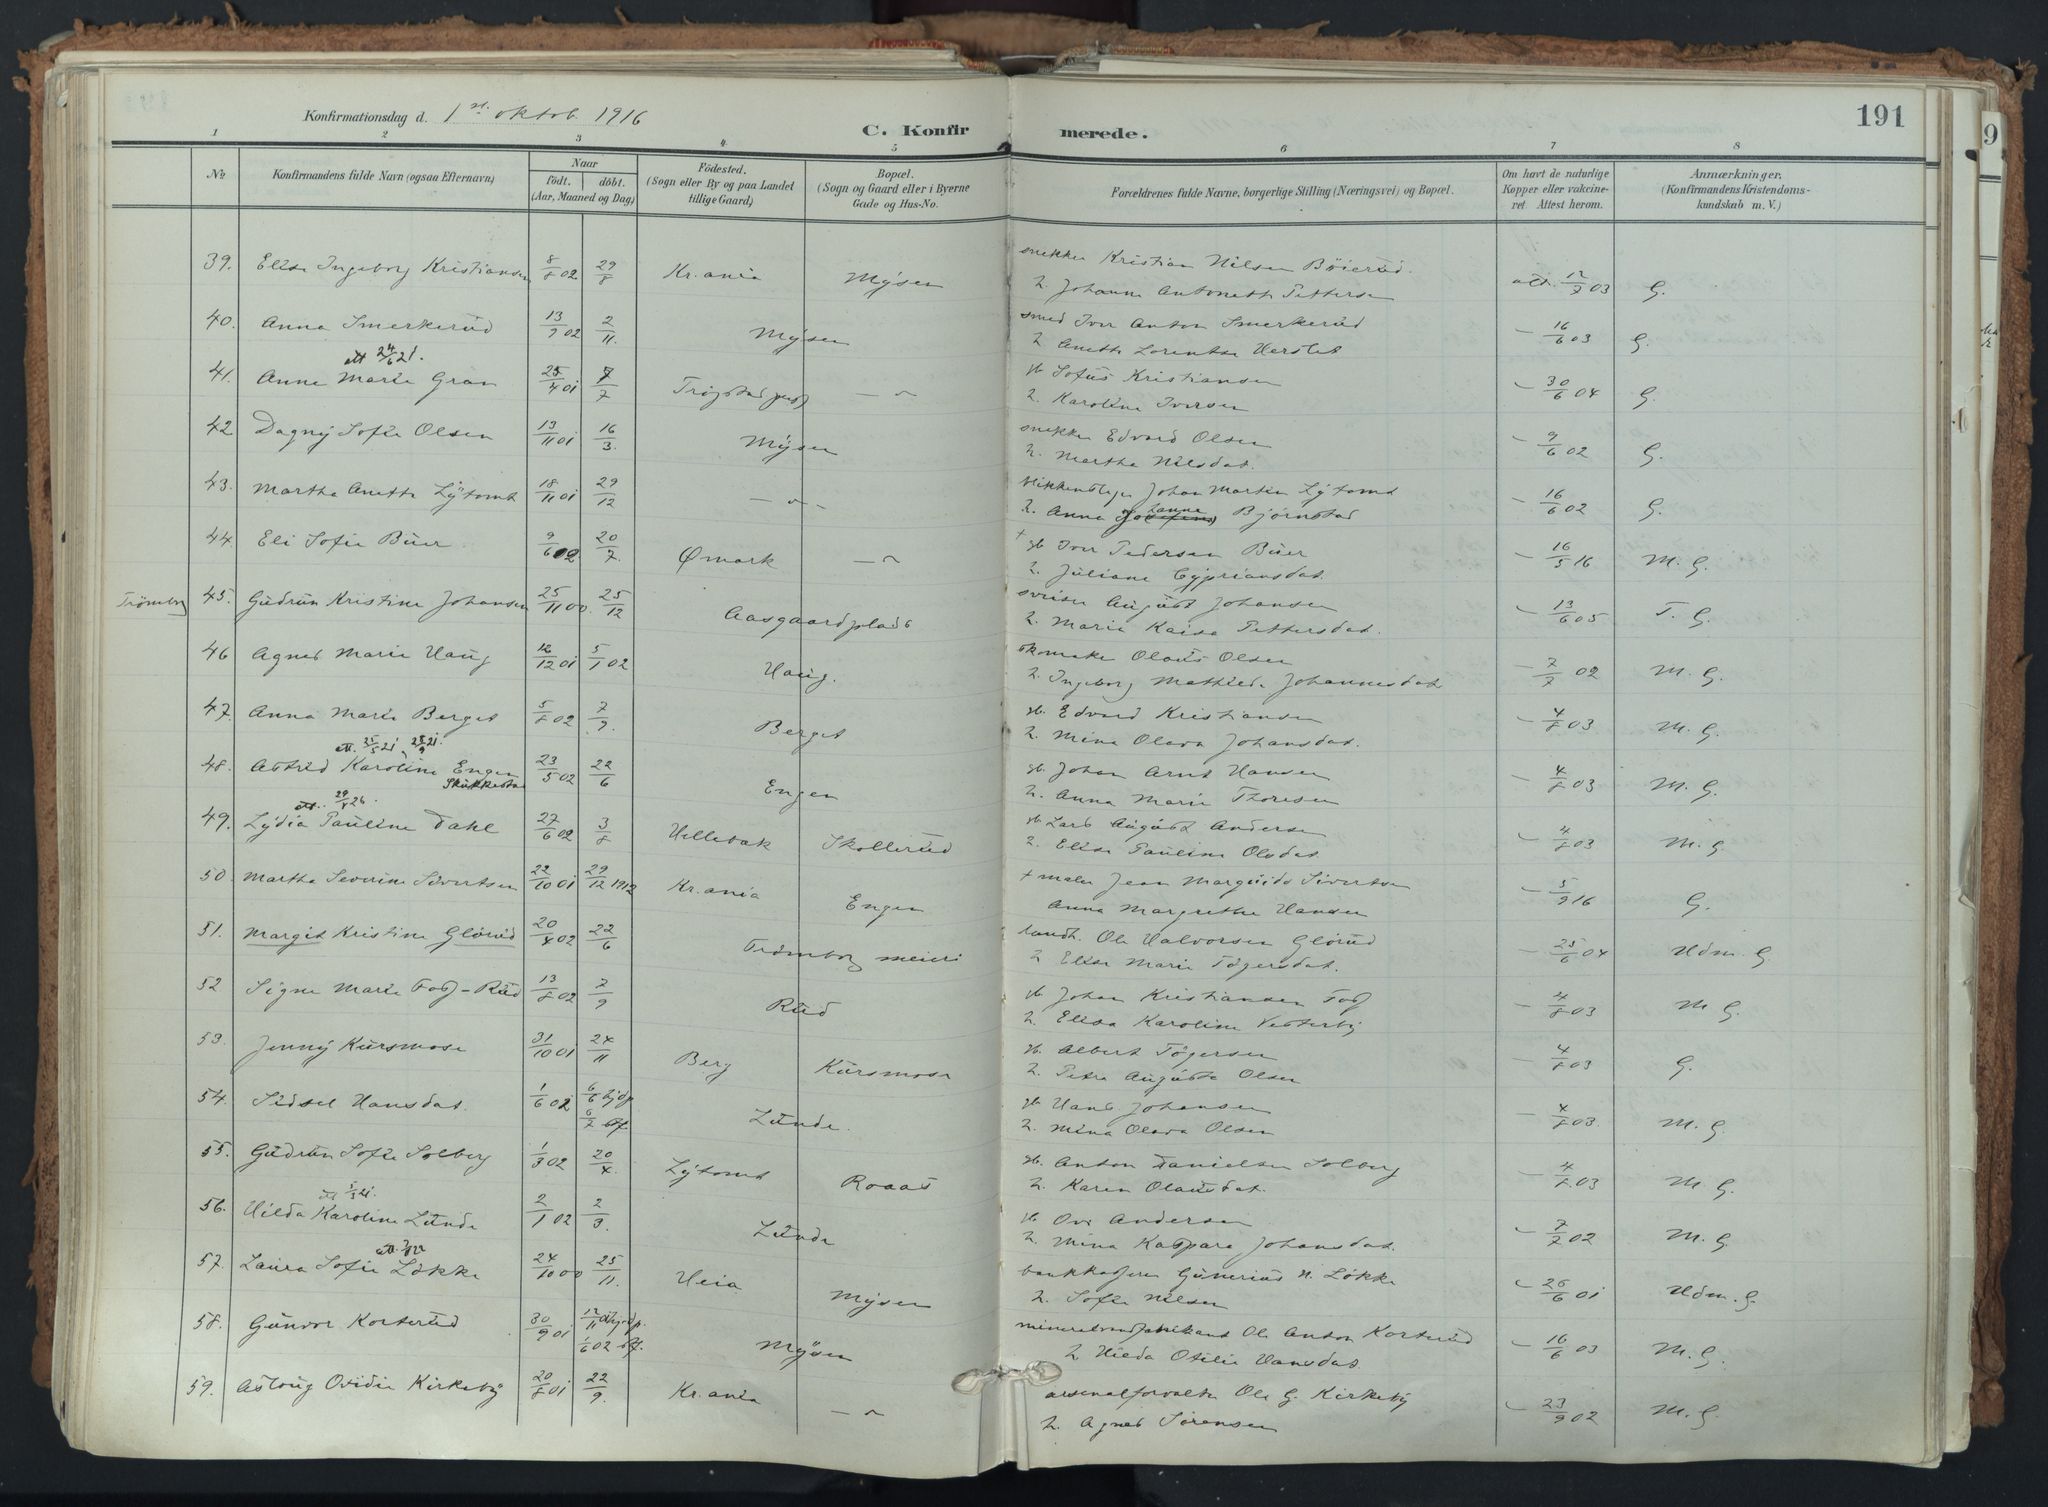 191
Konfirmationsdag d. 1st oktob. 1916
C. Konfirmerede.
1 2 3 4 5 6 7 8
No
Konfirmandens fulde Navn (ogsaa Efternavn)
Naar
födt. döbt.
(Aar, Maaned og Dag)
Födested.
(Sogn eller By og paa Landet
tillige Gaard)
Bopæl.
(Sogn og Gaard eller i Byerne
Gade og Hus-No.
Forældrenes fulde Navne, borgerlige Stilling (Næringsvei) og Bopæl.
Om havt de naturlige
Kopper eller vakcine-
ret. Attest herom.
Anmærkninger.
(Konfirmandens Kristendoms-
kundskab m. V.)
39. Elise Ingeborg Kristiansen 8/8 02 29/8 Kr.ania Mysen snekker Kristian Nilsen Böierud. att. 12/7 03 G.
2. Johanne Antonette Pettersen
40. Anna Smerkerud 13/9 02 2/11 Mysen smed Iver Anton Smerkerud - 16/6 03 G.
2 Anette Lorentse Herslet
att 24/6 21.
41. Anna Marie Gran 25/4 01 7/7 Trögstad - " - gb Sofus Kristiansen - 30/6 04 G.
2. Karoline Iversen
42 Dagny Sofie Olsen 13/11 01 16/3. Mysen snekker Edvard Olsen - 9/6 02 G.
2. Martha Nilsdat.
43. Martha Anette Lytomt 18/11 01 29/12 - " - Johan Martin Lytomt - 16/6 02 G.
2. Anna Hanne Björnstad
44. Eli Sofie Buer. 9/6 02 20/7. Ømark - " - + gb Iver Pedersen Buer - 16/5 16 M. G.
2. Juliane Cypriansdat.
Trömborg 45. Gudrun Kristine Johansen 25/11 00. 25/12 Aasgaardplads sveiser August Johansen - 13/6 05 T. G.
2. Marie Kaisa Pettersdat.
46 Agnes Marie Haug 16/12 01 5/1 02 Haug. Olaus Olsen - 7/7 02 M. G.
2. Ingeborg Mathilde Johannesdat
47. Anna Marie Berget 5/8 02 7/9. Berget gb. Edvard Kristiansen - 4/8 03 M. G.
2. Mina Olava Johansdat.
att. 25/5 21, 28/9 21.
48. Astrid Karoline Engen 23/5 02 22/6 Engen gb. Johan Arnt Hansen - 4/8 03 M. G.
Skukkestad 2. Anna Marie Thoresen
att. 29/8 26.
49. Lydia Pauline Dahl 27/6 02 3/8 Hellebæk Skollerud gb. Lars August Andersen - 4/8 03 M. G.
2. Elise Pauline Olsdat.
50. Martha Severine Sivertsen 22/10 01 29/12 1912 Kr.ania Engen + maler Jean Marguido Sivertsen - 5/9 16 G.
Anna Margrethe Hansen
51. Margit Kristine Glörud 20/4 02 22/6 Trömborg meieri landh. Ole Halvorsen Glörud - 25/6 04 Udm. G.
2 Elise Marie Tögersdat.
52 Signe Marie Foss-Rud 13/8 02 7/9 Rud gb Johan Kristiansen Foss - 4/8 03 M G.
2. Elisa Karoline Vesterby
53. Jenny Kursmose 31/10 01 24/11 Berg Kursmose gb. Albert Tögersen - 4/8 03 G.
2. Petra Augusta Olsen
54. Sidsel Hansdat. 1/6 02 6/6 hjdp 6/7 bf. Lunde. gb Hans Johansen - 4/8 03. M. G.
2. Mina Olava Olsen
55. Gudrun Sofie Solberg 1/3 02 20/4 Lytomt Roaas gb. Anton Danielsen Solberg - 4/8 03 M. G.
2. Karen Olausdat.
att 5/3 21.
56. Hilda Karoline Lunde 2/1 02 2/3. Lunde gb Ove Andersen - 7/7 02 M. G.
2. Mina Kaspara Johansdat.
57. Laura Sofie Lökke 24/10 00 25/11. Heia Mysen bankkasserer Gunerius N. Lökke - 26/6 01 Udm. G.
2. Sofie Nilsen
58. Gunvor Korterud 30/9 01 17/11 01 hjdp. 1/6 02 bf. Mysen mineralvandfabrikant Ole Anton Korterud - 16/6 03 M. G.
2 Hilda Otilie Hansdat.
59. Aslaug Ovidie Kirkeby 20/8 01 22/9. Kr.ania - " - arsenalforvalter Ole G. Kirkeby - 23/9 02 M. G.
2. Agnes Sörensen